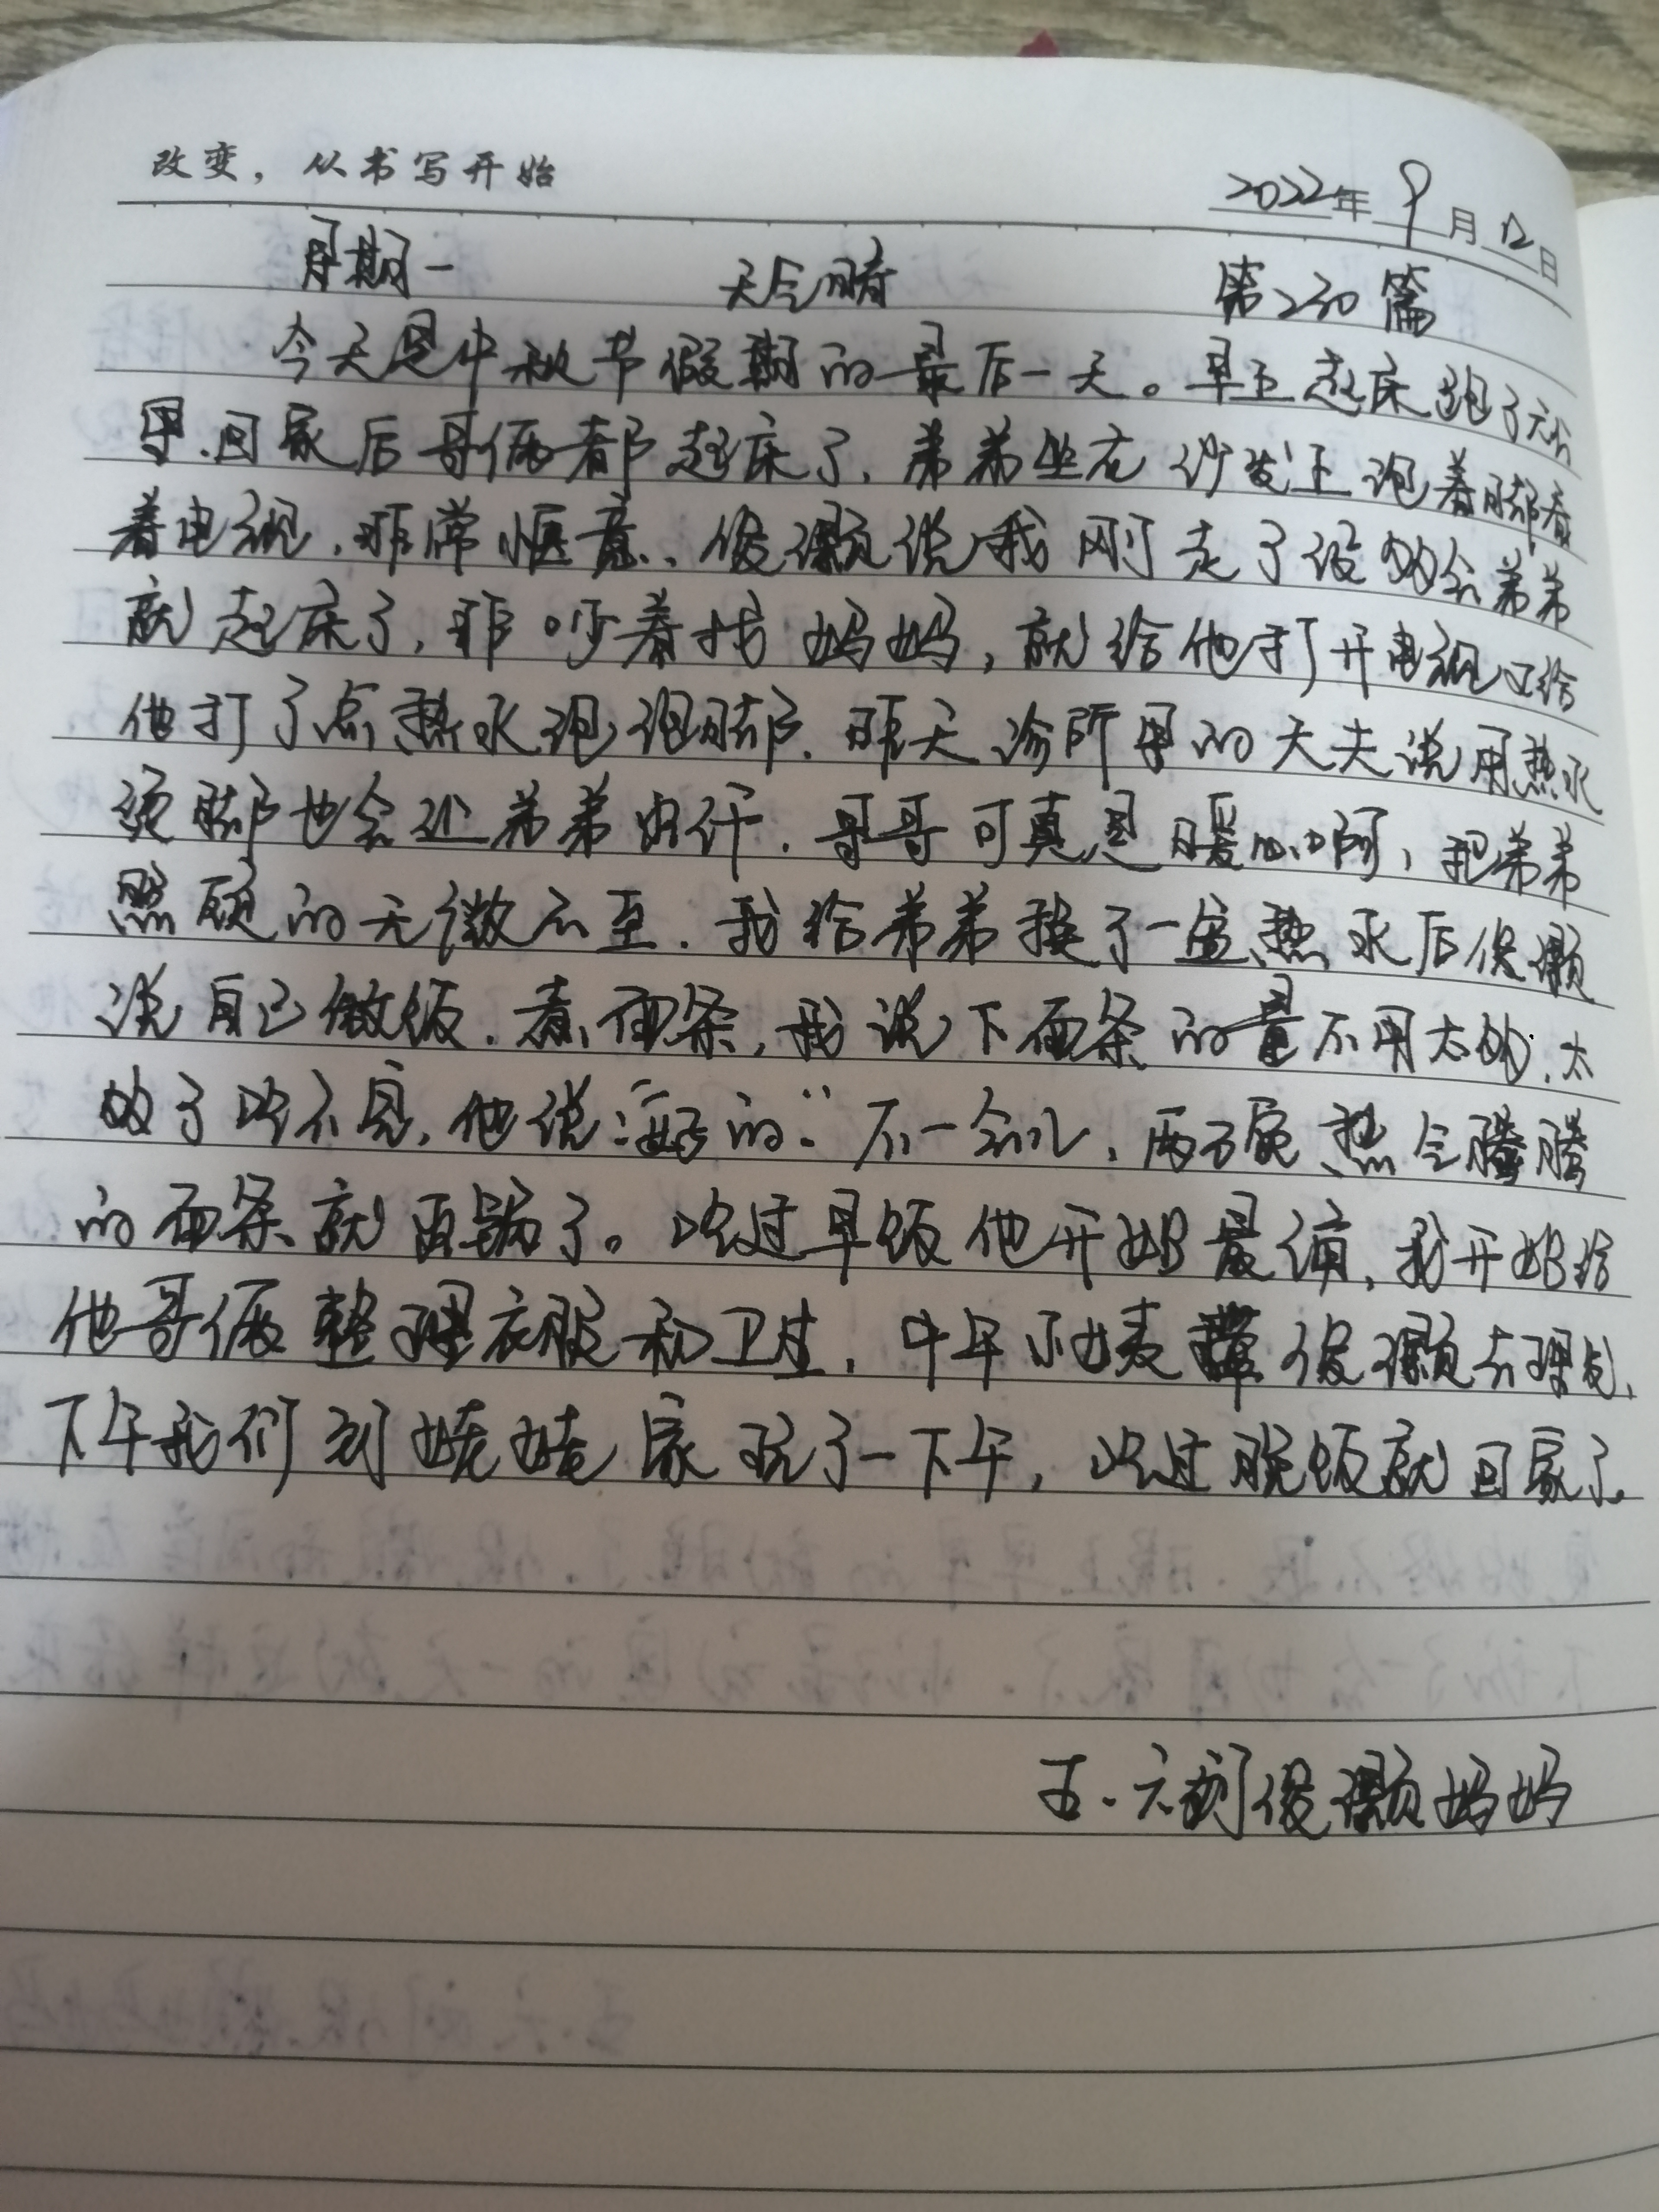 改变，从书写开始
2022年9月12日
星期一 天气晴 第230篇
今天是中秋节假期的最后一天。早上起床跑了六公
里.回家后哥俩都起床了,弟弟坐在沙发上泡着脚看
着电视,非常惬意、俊灏说我刚走了没多会弟弟
就起床了,非吵着找妈妈,就给他打开电视又给
他打了点热水泡泡脚.昨天诊所里的大夫说用热水
烫脚也会让弟弟出汗.哥哥可真是暖心啊,把弟弟
照顾的无微不至.我给弟弟换了一盆热水后俊灏
说自己做饭.煮面条,我说下面条的量不用太多,太
多了吃不完,他说:“好的.”不一会儿,两碗热气腾腾
的面条就出锅了。吃过早饭他开始背诵,我开始给
他哥俩整理衣服和卫生,中午小姨带俊灏去理发,
下午我们到姥姥家玩了一下午,吃过晚饭就回家了.
五.六刘俊灏妈妈